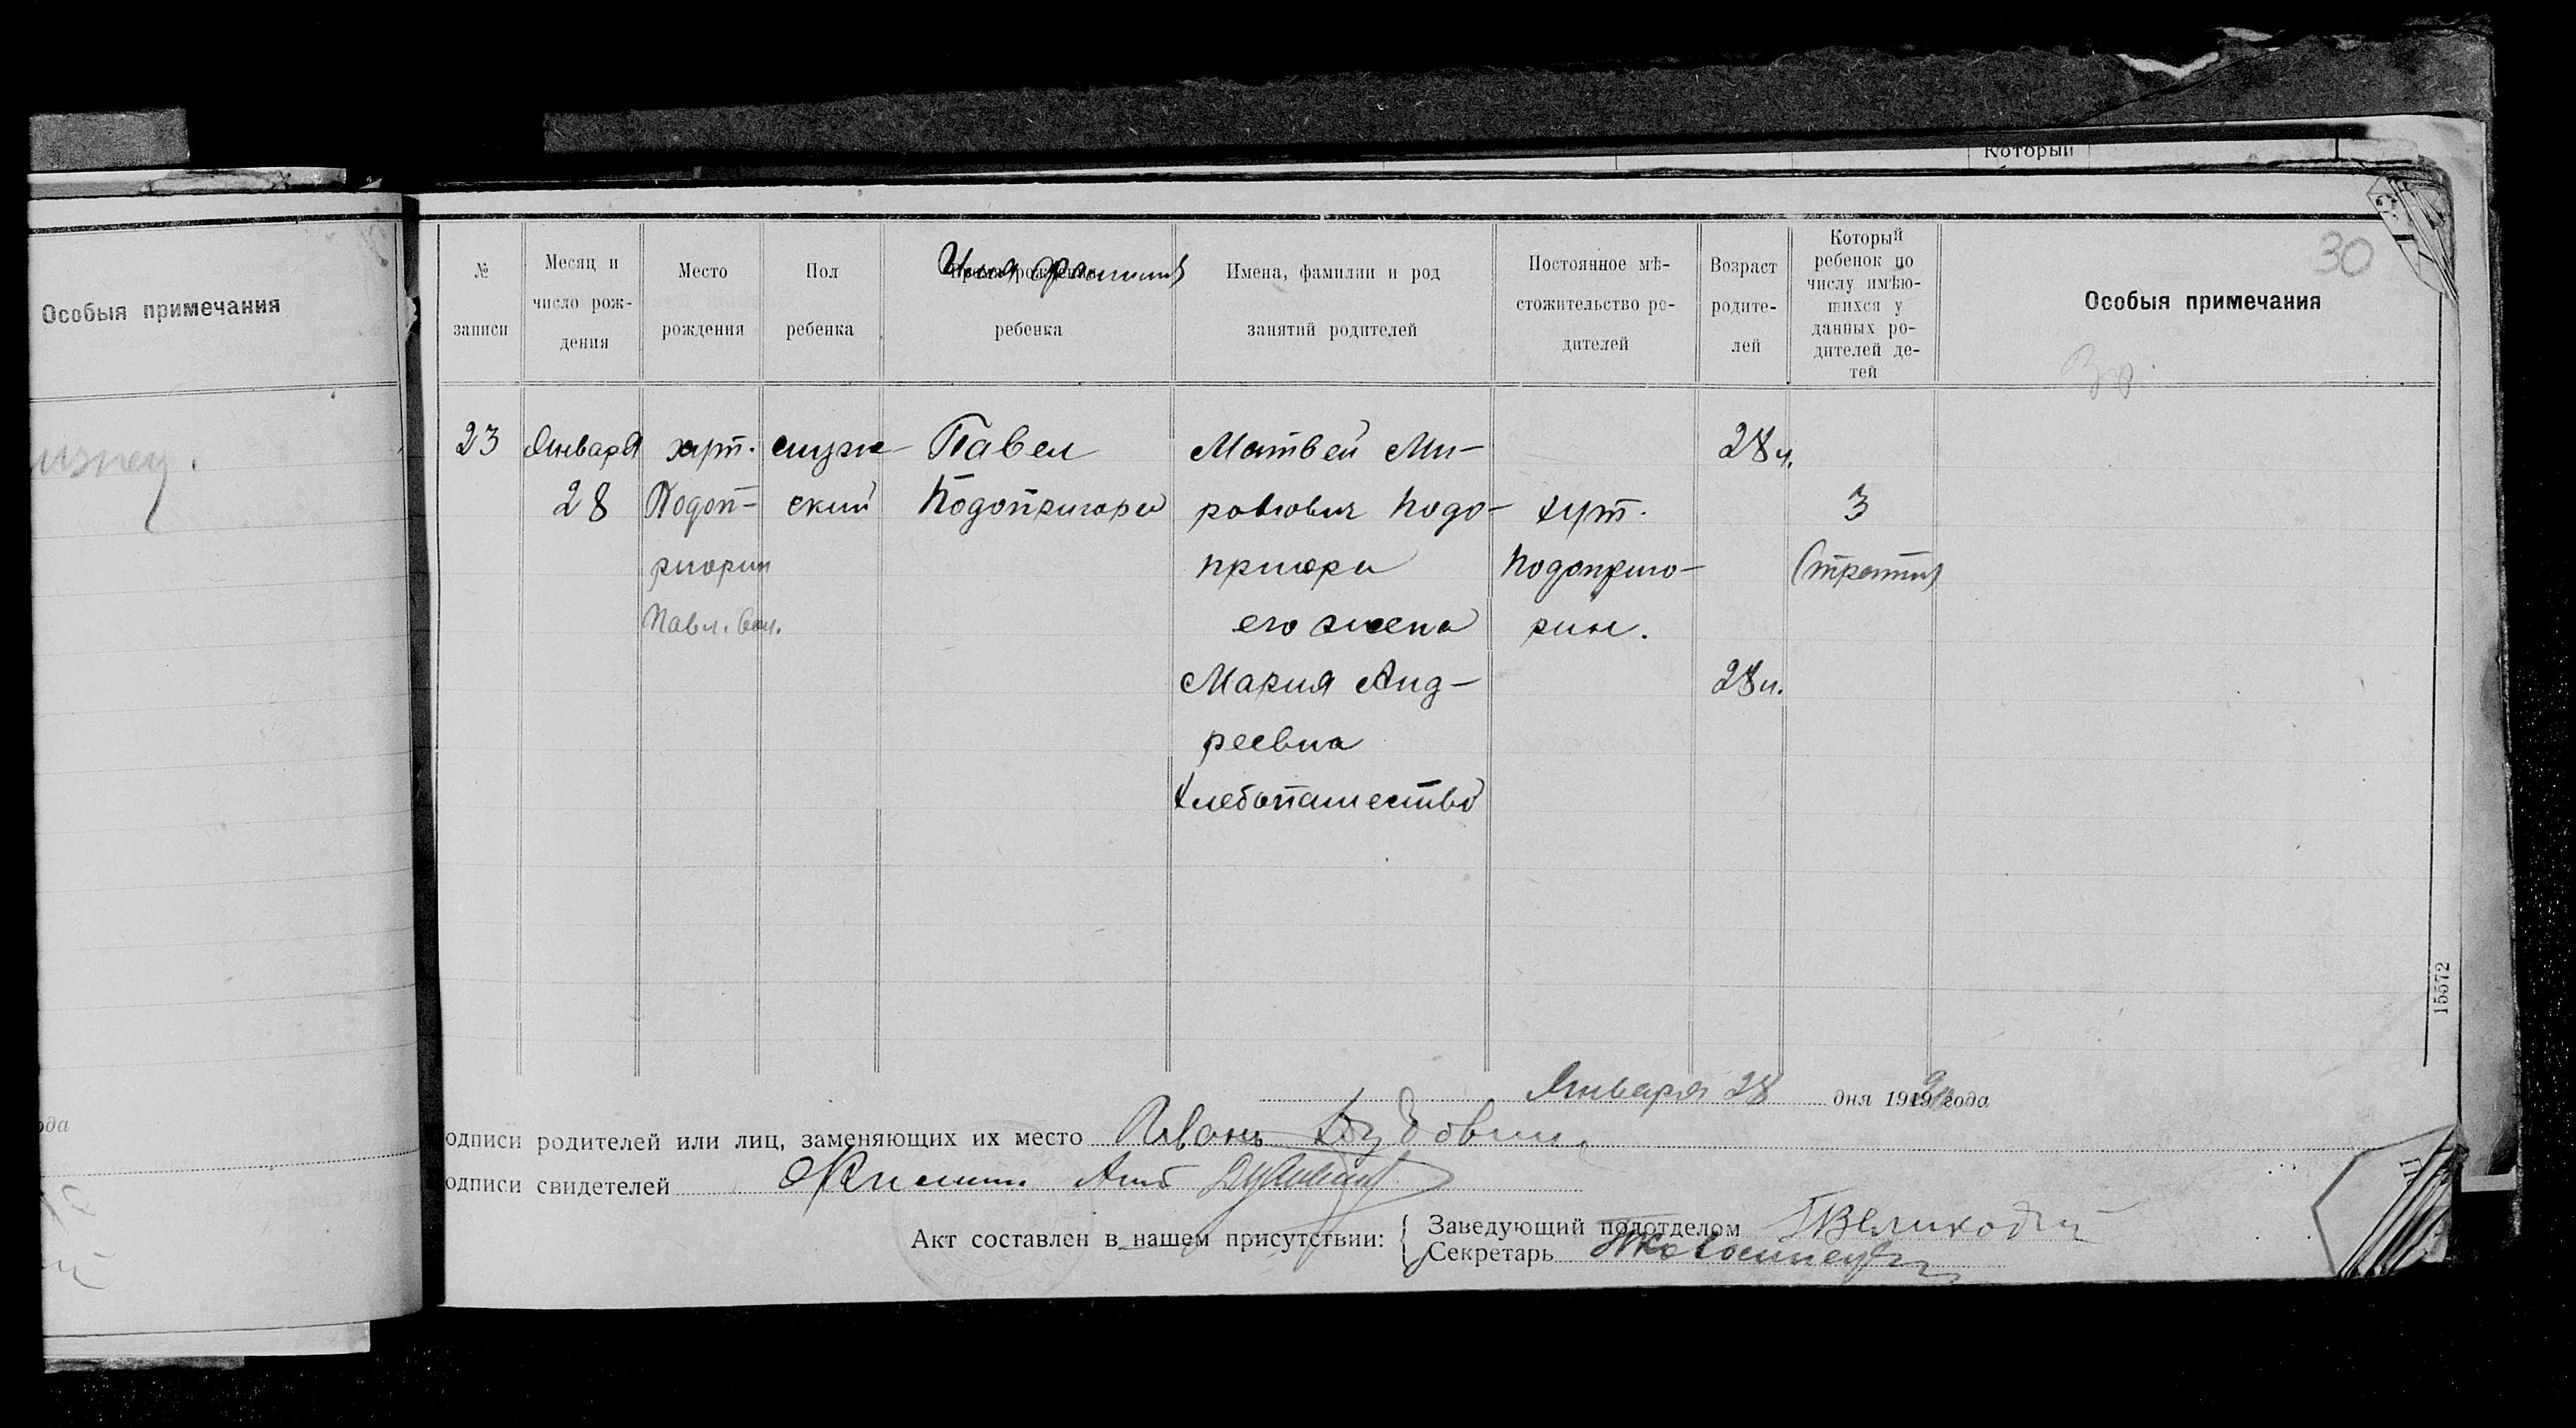 Который
30
Особыя примечания
№ записи
Месяц и число рож-дения
Место рождения
Пол ребенка
Имя фамилия ребенка
Имена, фамилии и род занятий родителей
Постоянное мѣ-стожительство ро-дителей
Возраст родите-лей
Который ребенок по числу имѣю-щихся у данных ро-дителей де-тей
Особыя примечания
23
Января
28
хут.
Подоп-
ригорин
Павл. вол.
мужс-
ский
Павел
Подопригора
Матвей Ми-
ронович Подо-
пригора
его жена
Мария Анд-
реевна
хлебопашество
хут.
Подоприго-
рин.
28 л.
28 л.
3
(третий)
15572
Января 28 дня 1919 года
ода
одписи родителей или лиц, заменяющих их место Иван
одписи свидетелей
Акт составлен в нашем присутствии:
Заведующий подотделом Великодный
Секретарь